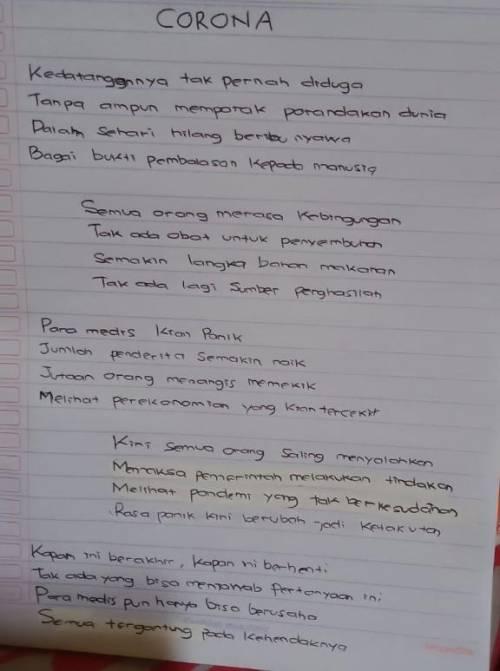 CORONA
Kedatangannya tak pernah diduga
Tanpa ampun memporak porandakan dunia
Dalam sehari hilang beribu nyawa
Bagai bukti pembalasan kepada manusia
Semua orang merasa kebingungan
Tak ada obat untuk penyembuhan
Semakin langka bahan makanan
Tak ada lagi sumber penghasilan
Para medis kian panik
Jumlah penderita semakin naik
Jutaan orang menangis memekik
Melihat perekonomian yang kian tercekit
Kini semua orang saling menyalahkan
Memaksa pemerintah melakukan tindakan
Melihat pandemi yang tak berkesudahan
Rasa panik kini berubah jadi ketakutan
Kapan ini berakhir, kapan ini berhenti
Tak ada yang bisa menjawab pertanyaan ini
Para medis pun hanya bisa berusaha
Semua tergantung pada kehendaknya